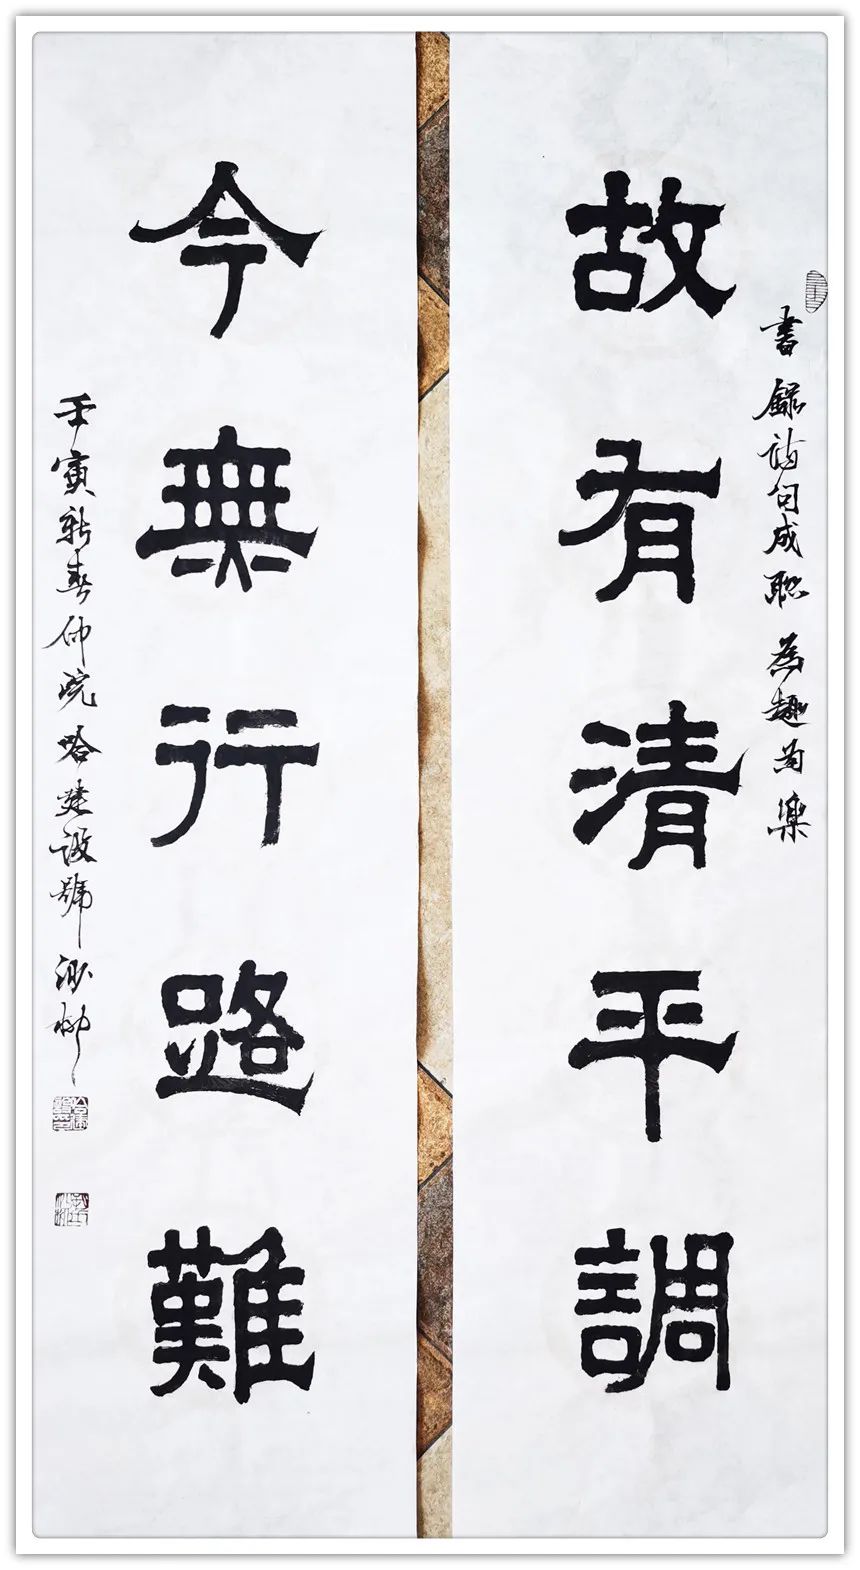 故有清平調
書錄詩句成聯為趣為樂
今無行路難
壬寅新春仲院哈建設號沙柳